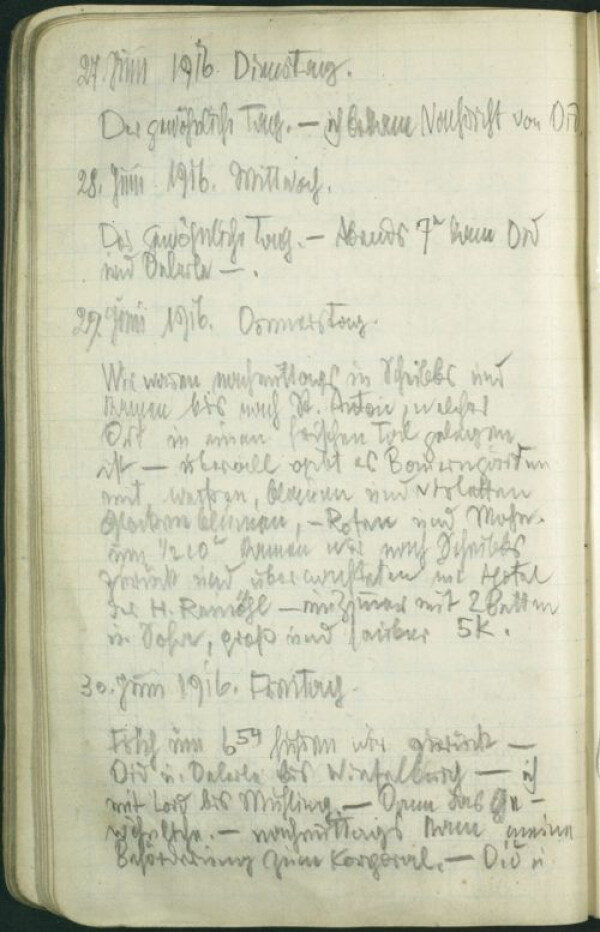 27. Juni 1916. Dienstag.
Der gewöhnliche Tag. — ich bekam Nachricht von
28. Juni 1916. Mittwoch.
Der gewöhnliche Tag. — Abends 7h kam
und —.
29. Juni 1916. Donnerstag.
Wir waren nachmittags in Scheibbs und
kamen bis nach St. Anton, welcher
Ort in einem Tal gelegen
ist — überall gibt es Bauerngärten
mit weißen, blauen und violetten
Glockenblumen, — Rosen und Mohn.
um 1/2 10h kamen wir nach Scheibbs
zurück und übernachteten im Hotel
des H. — ein Zimmer mit 2 Betten
u. Sofa, groß und sauber 5K.
30. Juni 1916. Freitag.
Früh um 6 54 fuhren wir zurück —
u. bis — ich
mit bis — Dann das Ge-
wöhnliche. — nachmittags kam meine
Beförderung zum Korporal. — u